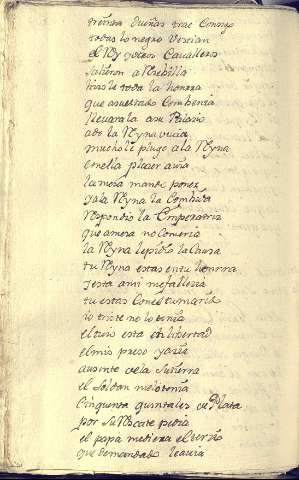 treinta Dueñas trae Consigo
todas lo negro Vestian
el Rey y otros Cavalleros
salieron a Rebilla
hisole toda la honrra
que a su estado Combenia
llevarala a su Palacio
ado la Reyna vivia
mucho le plugo a la Reyna
con ella plaser avia
la mesa mando poner
y a la Reyna la Combida
Respondio la Emperatris
que a mesa no Comeria
la Reyna le pidio la Causa
tu Reyna estas en tu honrra
y esta a mi me falleria
tu estas Con el tu marido
lo triste no lo tenia
el tuio esta en libertad
el mio preso yasia
ausente de la su tierra
el Soldan me lo tenia
Cinquenta quintales de Plata
por su Rescate pedia
el papa me diera el tersio
que demandado le avia